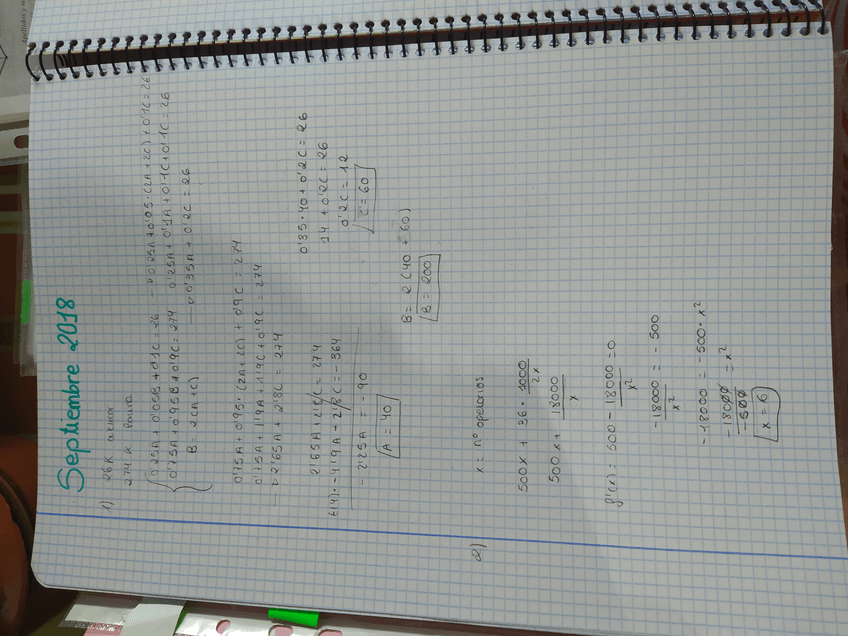 Septiembre 2018
1) 26 K
274 K
0'25A + 0'05B + 0'1C = 26
0'75A + 0'95B + 0'9C = 274
B = 2(A+C)
0'25A + 0'05·(2A+2C) + 0'1C = 26
0'25A + 0'1A + 0'1C + 0'1C = 26
0'35A + 0'2C = 26
0'75A + 0'95·(2A+2C) + 0'9C = 274
0'75A + 1'9A + 1'9C + 0'9C = 274
2'65A + 2'8C = 274
2'65A + 2'8C = 274
- 4'9A - 2'8C = - 364
- 2'25A = - 90
A = 40
0'35·40 + 0'2C = 26
14 + 0'2C = 26
0'2C = 12
C = 60
B = 2(40 + 60)
B = 200
2) x = nº operarios
500x + 36 · 1000/2x
500x + 18000/x
f'(x) = 500 - 18000/x² = 0
-18000/x² = - 500
-18000 = -500·x²
-18000/-500 = x²
x = 6